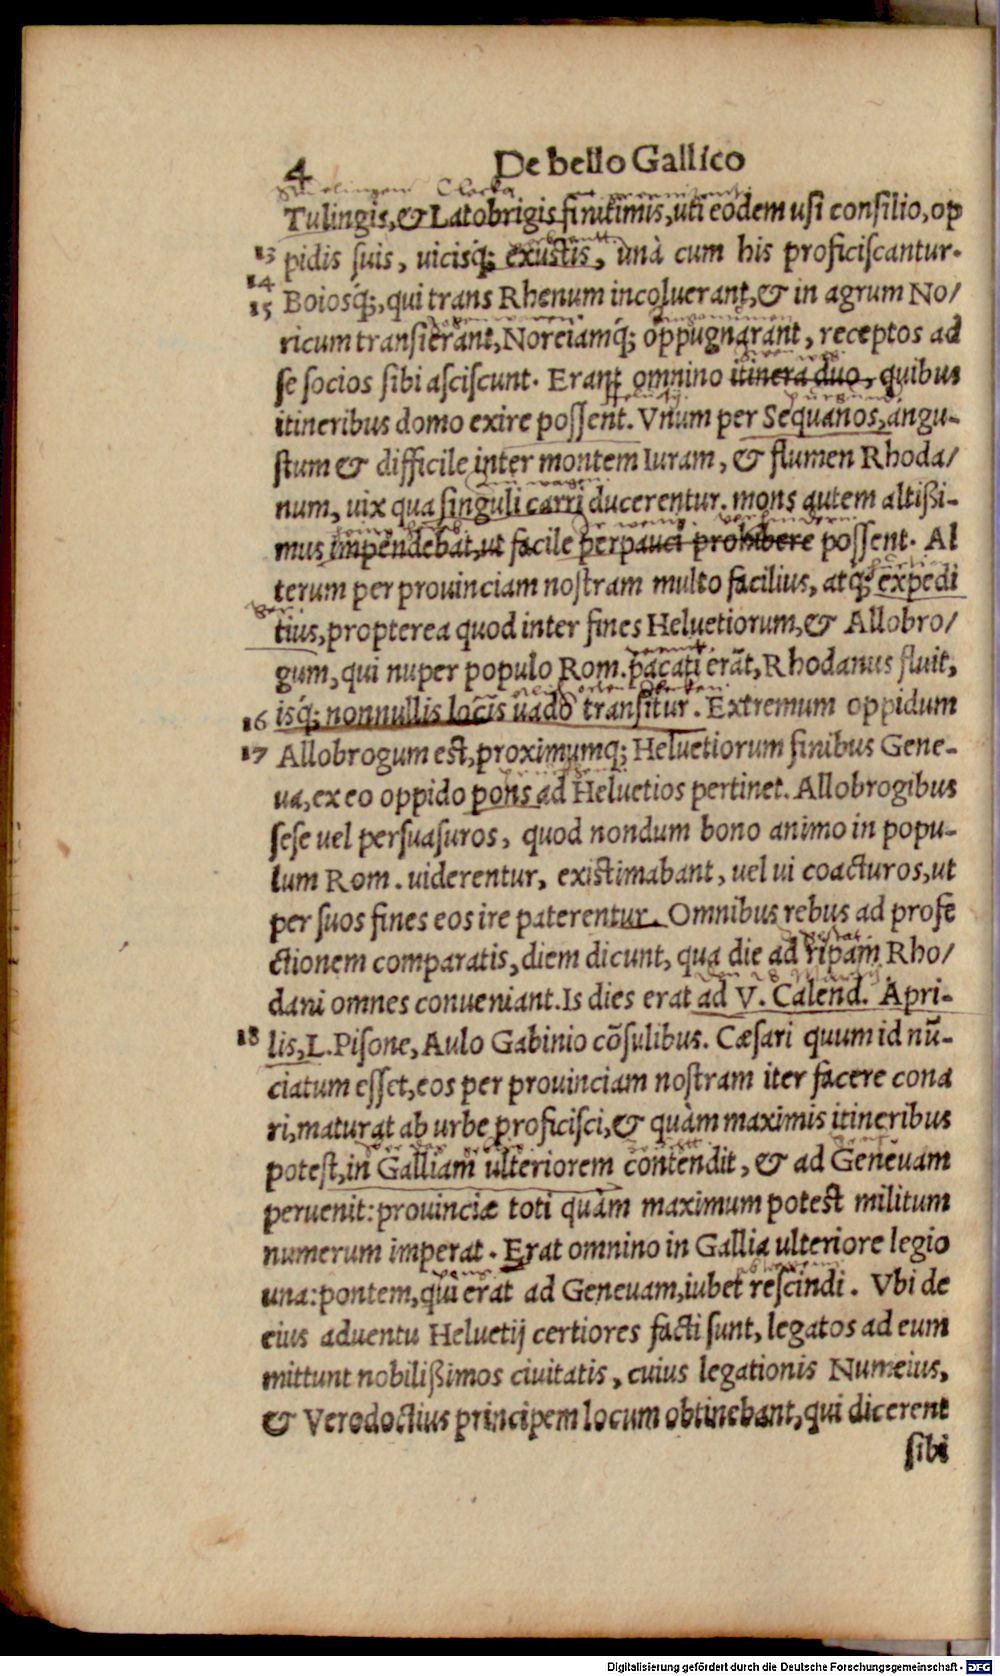 4 De bello Gallico
Tulingis, & Latobrigis finitimis, uti eodem usi consilio, op
13 pidis suis, uicisq́; exustis, unà cum his proficiscantur.
14
15 Boiosq́;, qui trans Rhenum incoluerant, & in agrum No/
ricum transierant, Noreiamq́; oppugnarant, receptos ad
se socios sibi asciscunt. Erant omnino itinera duo, quibus
itineribus domo exire possent. Vnum per Sequanos, angu-
stum & difficile inter montem Iuram, & flumen Rhoda/
num, uix qua singuli carri ducerentur. mons autem altißi-
mus impendebat, ut facile perpauci prohibere possent. Al
terum per prouinciam nostram multo facilius, atq́; expedi
tius, propterea quod inter fines Heluetiorum, & Allobro/
gum, qui nuper populo Rom. pacati erãt, Rhodanus fluit,
16 isq́; nonnullis locis uado transitur. Extremum oppidum
17 Allobrogum est, proximumq́; Heluetiorum finibus Gene-
ua, ex eo oppido pons ad Heluetios pertinet. Allobrogibus
sese uel persuasuros, quod nondum bono animo in popu-
lum Rom. uiderentur, existimabant, uel ui coacturos, ut
per suos fines eos ire paterentur. Omnibus rebus ad profe
ctionem comparatis, diem dicunt, qua die ad ripam Rho/
den 28 Martij.
dani omnes conueniant. Is dies erat ad V. Calend. Apri-
18 lis, L. Pisone, Aulo Gabinio cõsulibus. Cæsari quum id nũ-
ciatum esset, eos per prouinciam nostram iter facere cona
ri, maturat ab urbe proficisci, & quàm maximis itineribus
potest, in Galliam ulteriorem contendit, & ad Geneuam
peruenit: prouinciæ toti quàm maximum potest militum
numerum imperat. Erat omnino in Gallia ulteriore legio
una: pontem, qui erat ad Geneuam, iubet rescindi. Vbi de
eius aduentu Heluetij certiores facti sunt, legatos ad eum
mittunt nobilißimos ciuitatis, cuius legationis Numeius,
& Verodoctius principem locum obtinebant, qui dicerent
sibi
Digitalisierung gefördert durch die Deutsche Forschungsgemeinschaft - DFG